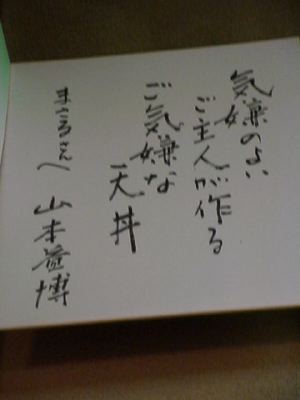 気嫌のよい
ご主人が作る
ご気嫌な
天丼
まさるさんへ 山本益博